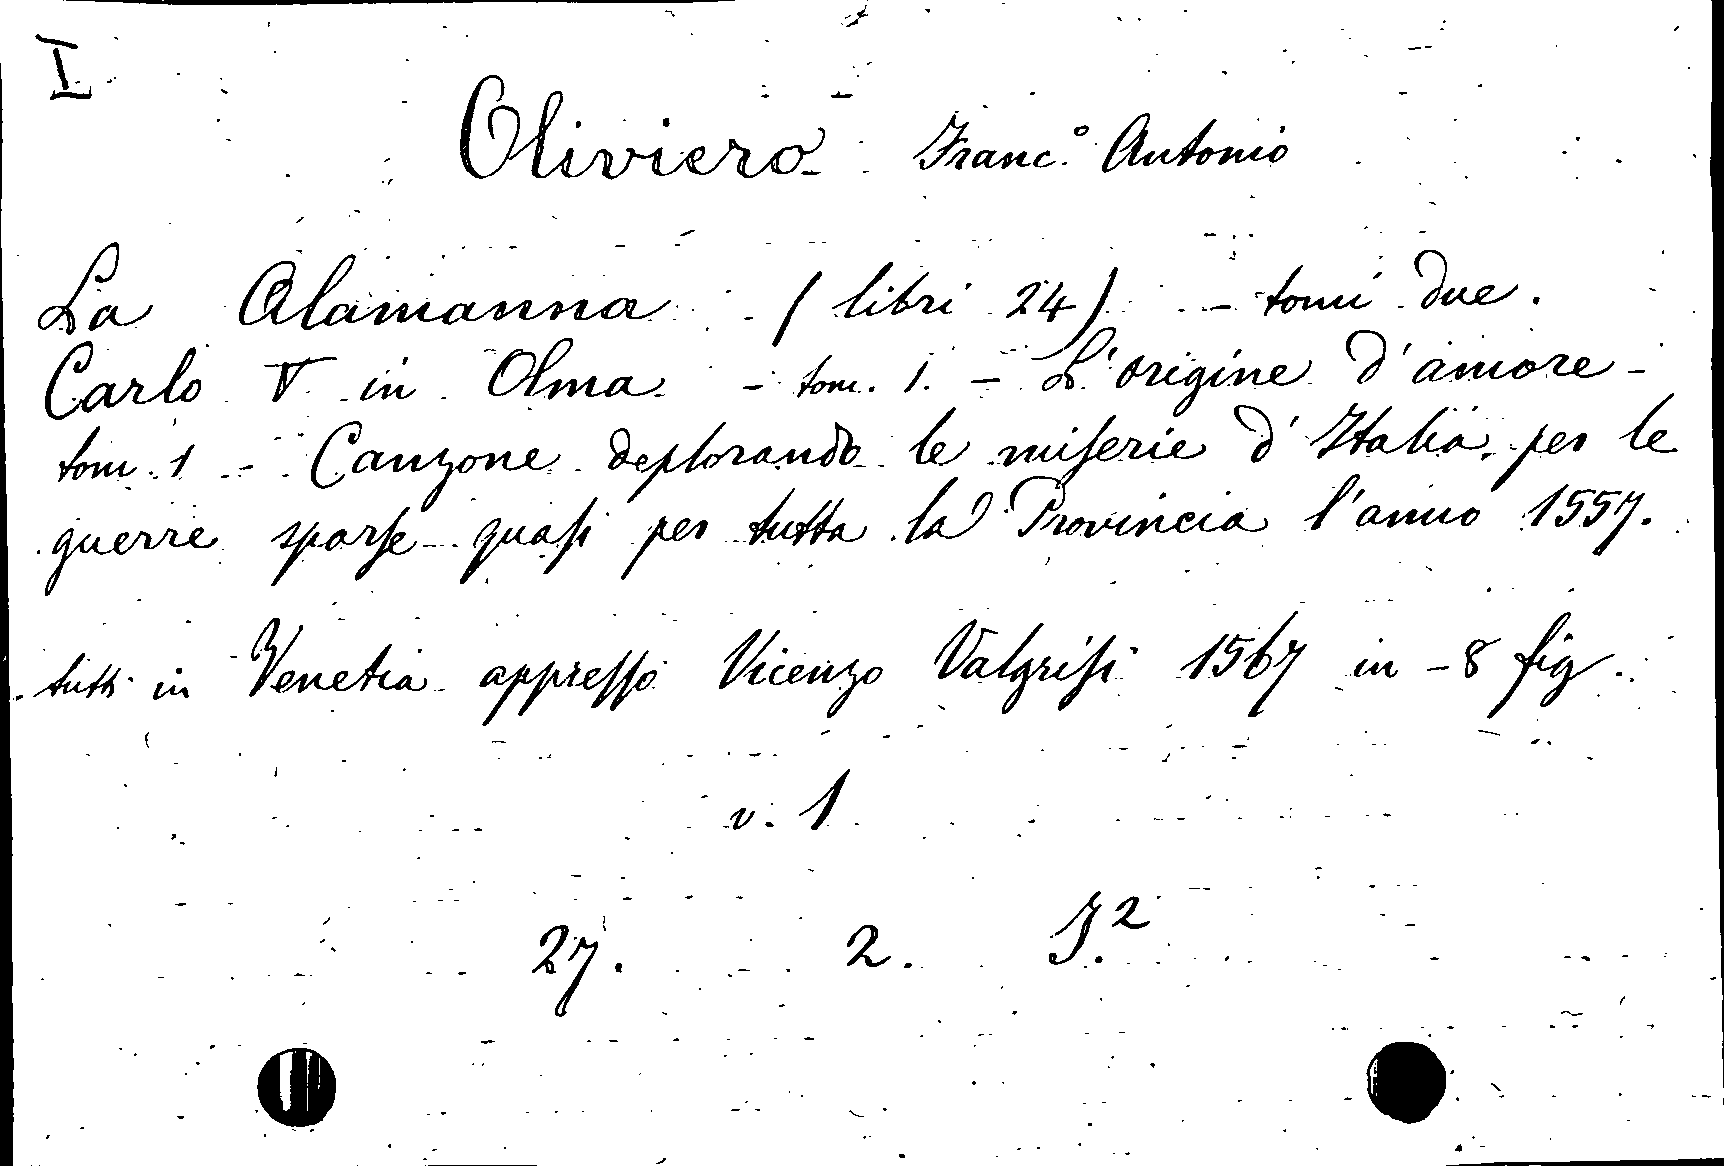 I
Oliviero Franc.º Antonio
La Alamanna (libri 24) - tomi due.
Carlo V in Olma - tom. 1. - L'origine d'amore -
tom. 1 - Canzone deplorando le miserie d'Italia, per le
guerre sparse quasi per tutta la Provincia l'anno 1557.
tutti in Venetia appresso Vicenzo Valgrisi 1567 in - 8 fig.
v. 1
27. 2. I.²